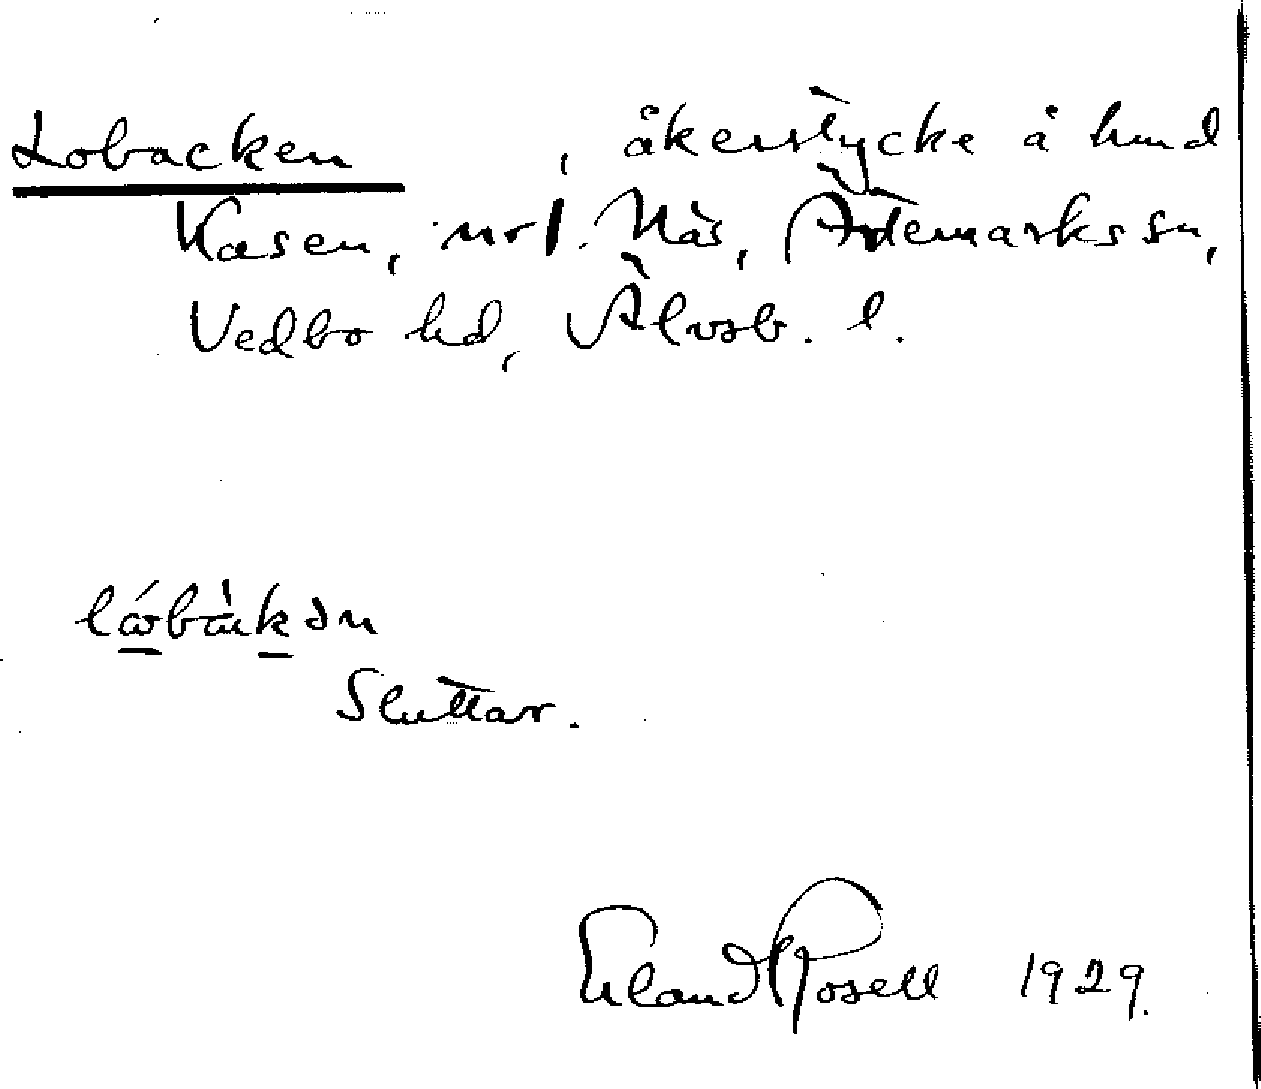 Lobacken , åkerstycke å hmd
Kasen, nr 1 Näs, Ärtemarks sn,
Vedbo hd, Älvsb. l.
Sluttar.
Erland Rosell 1929.